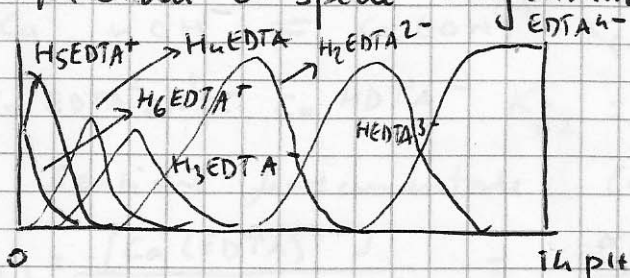 EDTA4-
H5EDTA+
H4EDTA
H2EDTA2-
H6EDTA+
HEDTA3-
H3EDTA-
0
14 pH